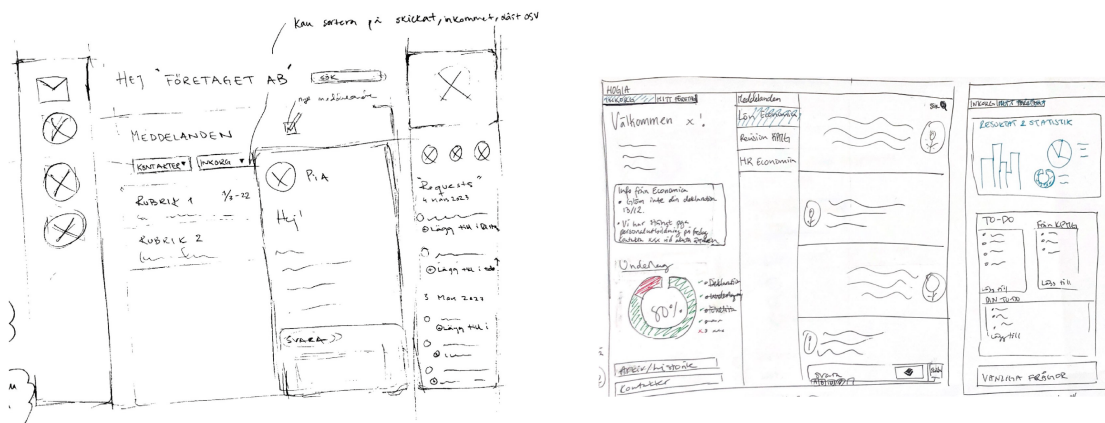 Kan sortera på skickat, inkommet, läst OSV
HEJ "FÖRETAGET AB"
SÖK
nytt meddelande
MEDDELANDEN
KONTAKTER
INKORG
RUBRIK 1
RUBRIK 2
PIA
Hej!
SVARA >>
"Requests"
4 mån 2023
Lägg till i
Lägg till i
3 Mån 2023
Lägg till i
HOGIA
INKORG
MITT FÖRETAG
Välkommen x!
Info från Economica
• Glöm inte din deklaration
13/12.
• Vi har stängt pga
personalutbildning på fredag
Underlag
80%
Arkiv/Historik
Kontakter
Meddelanden
Lön Economica
Revision KPMG
HR Economica
Sök
Svara
INKORG
MITT FÖRETAG
RESULTAT & STATISTIK
TO-DO
Från KPMG
Lägg till
Lägg till
DIN TO-DO
Lägg till
VANLIGA FRÅGOR